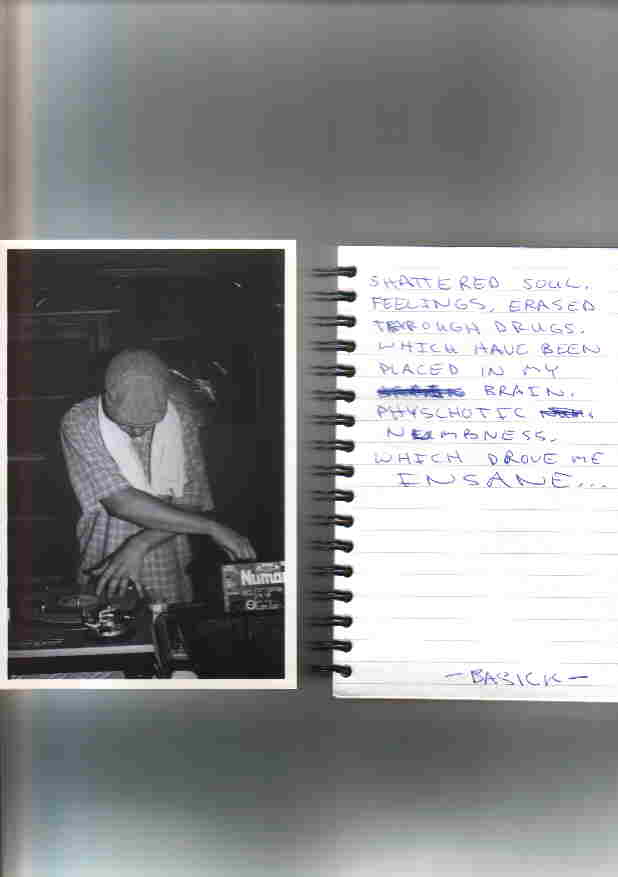 Numar
SHATTERED SOUL.
FEELINGS, ERASED
THROUGH DRUGS.
WHICH HAVE BEEN
PLACED IN MY
BRAIN.
PHYSCHOTIC
NUMBNESS.
WHICH DROVE ME
INSANE...
-BASICK-